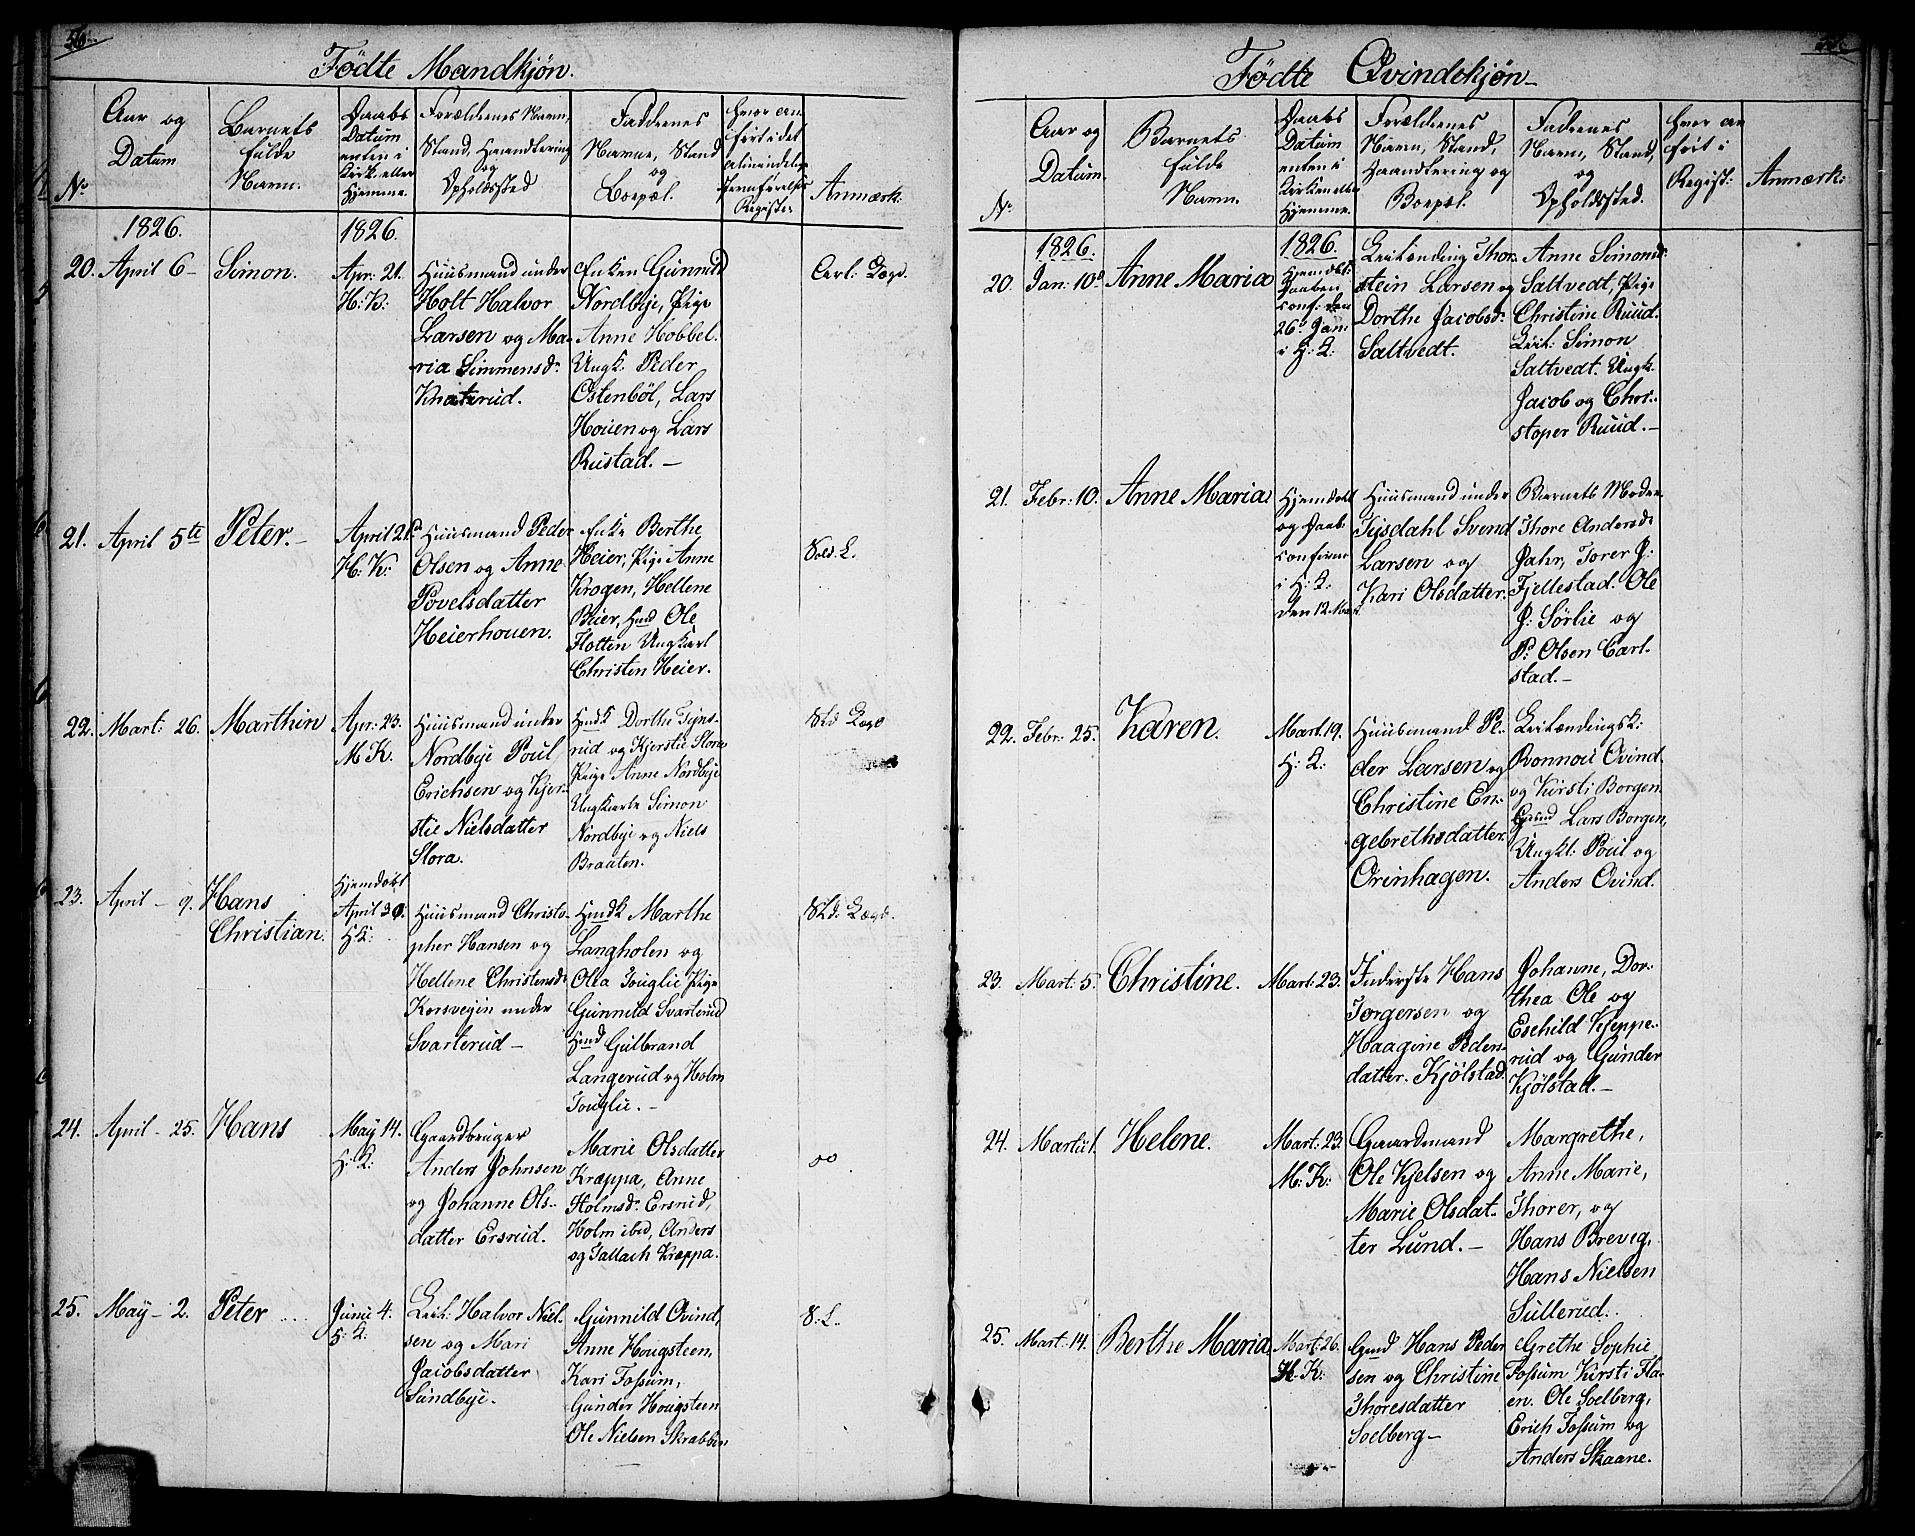 56.
Födte Mandkjøn.
No
Aar og
Datum
Barnets
fulde
Navn.
Daabs
Datum
enten i
Kirk. eller
Hjemme.
Forældrenes Navn,
Stand, Haandtering
og
Opholdssted
Faddernes
Navne, Stand
og
Boepæl.
Hvor an-
ført i det
Anmærk:
1826.
1826.
20. April 6 – Simon.
Apr: 21.
H: K:
Huusmand under
Holt Halvor
Larsen og Ma-
ria Simmensd:
Knaterud.
Enken Gunnild
Nordbye, Pige
Anne Hobbel.
Ungk. Peder
Ostenböl, Lars
Houen og Lars
Rustad. –
21. April 5te Peter. –
April 21
H: K:
Huusmand Peder
Olsen og Anne
Povelsdatter
Heierhouen.
Enke Berthe
Heier, Pige Anne
Krogen, Hellene
Beier, Hmd Ole
Flotten Ungkarl
Christen Heier.
Sold. L.
22. Mart: 26. Marthin
Apr: 23.
M K.
Huusmand under
Nordbye Poul
Erichsen og Kjer-
stie Nielsdatter
Slora.
Hmdk Dorthe Tejns-
rud og Kjerstie Slora
Pige Anne Nordbye
Ungkarle Simon
Nordbye og Niels
Braaten.
23. April – 9. Hans
Christian.
Hjemdöbt
April 30.
H K:
Huusmand Christo-
pher Hansen og
Hellene Christensd:
Korsvegin under
Svarterud –
Hmdk Marthe
Langholen og
Olea Touglie Pige
Gunnild Svarterud
Hmd Gulbrand
Langerud og Holm
Touglie. –
24. April – 25. Hans
May 14.
H: K:
Gaardbruger
Anders Johnsen
og Johanne Ols-
datter Ersrud.
Marie Olsdatter
Kræppa, Anne
Holmsd: Ersrud,
Holm ibid, Anders
og Tallach Kræppa.
25. May – 2. Peter ...
Junii 4.
Leil: Halvor Niel-
sen og Mari
Jacobsdatter
Sundbye.
Gunnild Ovind,
Anne Hougsteen,
Kari Fossum,
Gunder Hougsteen
Ole Nielsen Skrabben
S: L.
Födte Qvindekjøn –
No.
Aar og
Datum.
Barnets
fulde
Navn.
Daabs
Datum
enten i
Kirken eller
Hjemme.
Forældrenes
Navn, Stand,
Haandtering og
Boepæl.
Fadrenes
Navn, Stand,
og
Opholdssted.
Hvor an-
ført i
Regist:
Anmærk:
1826.
1826.
20. Jan: 10de Anne Maria
Hjemdöbt
Daaben
conf: den
26de Jan:
i H: K:
Leilænding Thor-
stein Larsen og
Dorthe Jacobsd:
Saltvedt.
Anne Simonsd:
Saltvedt, Pige
Christine Ruud.
Leil. Simon
Saltvedt. Ungk.
Jacob og Chri-
stoper Ruud. –
21. Febr: 10. Anne Maria
Hjemdöbt
og Daab.
confirm:
i H: K:
den 12. Mart
Huusmand under
Tijsdahl Svend
Larsen og
Kari Olsdatter.
Barnets Moder
Thore Andersd:
Jahr, Torer J:
Fjellestad. Ole
J: Sørlie og
P: Olsen Carl-
stad. –
22. Febr: 25. Karen.
Mart. 19.
H: K:
Huusmand Pe-
der Larsen og
Christine En-
gebrethsdatter.
Orinhagen.
Leilændingsk:
Ronnou Ovind
og Kirsti Borgen
Lars Borgen,
Ungkl: Poul og
Anders Ovind.
23. Mart: 5. Christine.
Mart: 23.
Inderste Hans
Torgersen og
Haagine Peders-
datter. Kjölstad.
Johanne, Dor-
thea Ole og
Eschild Kjeppe-
rud og Gunder
Kjölstad. –
24. Martii 1. Helene.
Mart: 23.
M: K:
Gaardmand
Ole Kjelsen og
Marie Olsdat-
ter Lund. –
Margrethe,
Anne Marie,
Thorer, og
Hans Brevig,
Hans Nielsen
Sullerud.
25. Mart: 14. Berthe Maria
Mart: 26.
H. K:
Gmd Hans Peder
sen og Christine
Thoresdatter
Soelberg –
Grethe Sophie
Fossum, Kirsti Fla-
en. Ole Soelberg,
Erich Fossum og
Anders Skaane.